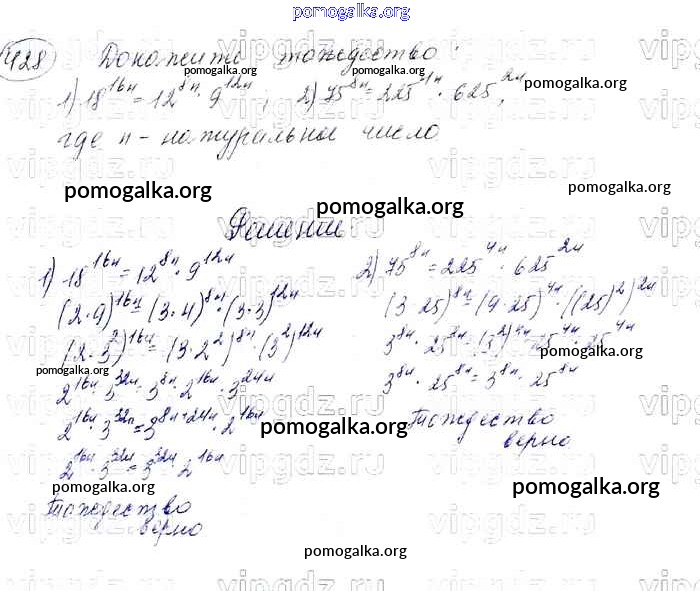 pomogalka.org
428 Докажите тождество:
pomogalka.org pomogalka.org
1) 18^16n = 12^8n · 9^12n; 2) 75^8n = 225^4n · 625^2n,
pomogalka.org
где n - натуральное число
pomogalka.org
pomogalka.org
pomogalka.org
Решение
1) 18^16n = 12^8n · 9^12n
(2·9)^16n = (3·4)^8n · (3·3)^12n
(2·3^2)^16n = (3·2^2)^8n · (3^2)^12n
pomogalka.org
2^16n · 3^32n = 3^8n · 2^16n · 3^24n
2^16n · 3^32n = 3^8n+24n · 2^16n
2^16n · 3^32n = 3^32n · 2^16n
pomogalka.org
Тождество
верно
2) 75^8n = 225^4n · 625^2n
(3·25)^8n = (9·25)^4n · ((25)^2)^2n
3^8n · 25^8n = (3^2)^4n · 25^4n · 25^4n
pomogalka.org
3^8n · 25^8n = 3^8n · 25^8n
Тождество
верно
pomogalka.org
pomogalka.org
pomogalka.org
vipgdz.ru